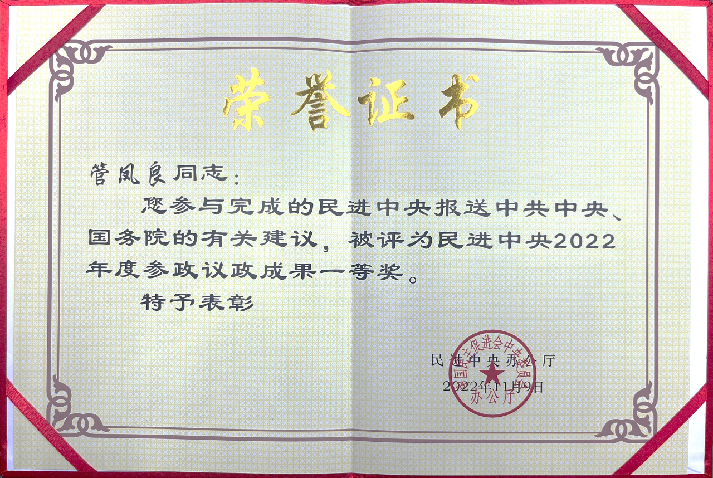 荣誉证书
管凤良同志：
您参与完成的民进中央报送中共中央、
国务院的有关建议，被评为民进中央2022
年度参政议政成果一等奖。
特予表彰
民进中央办公厅
2022年11月9日
中国民主促进会中央委员会
办公厅